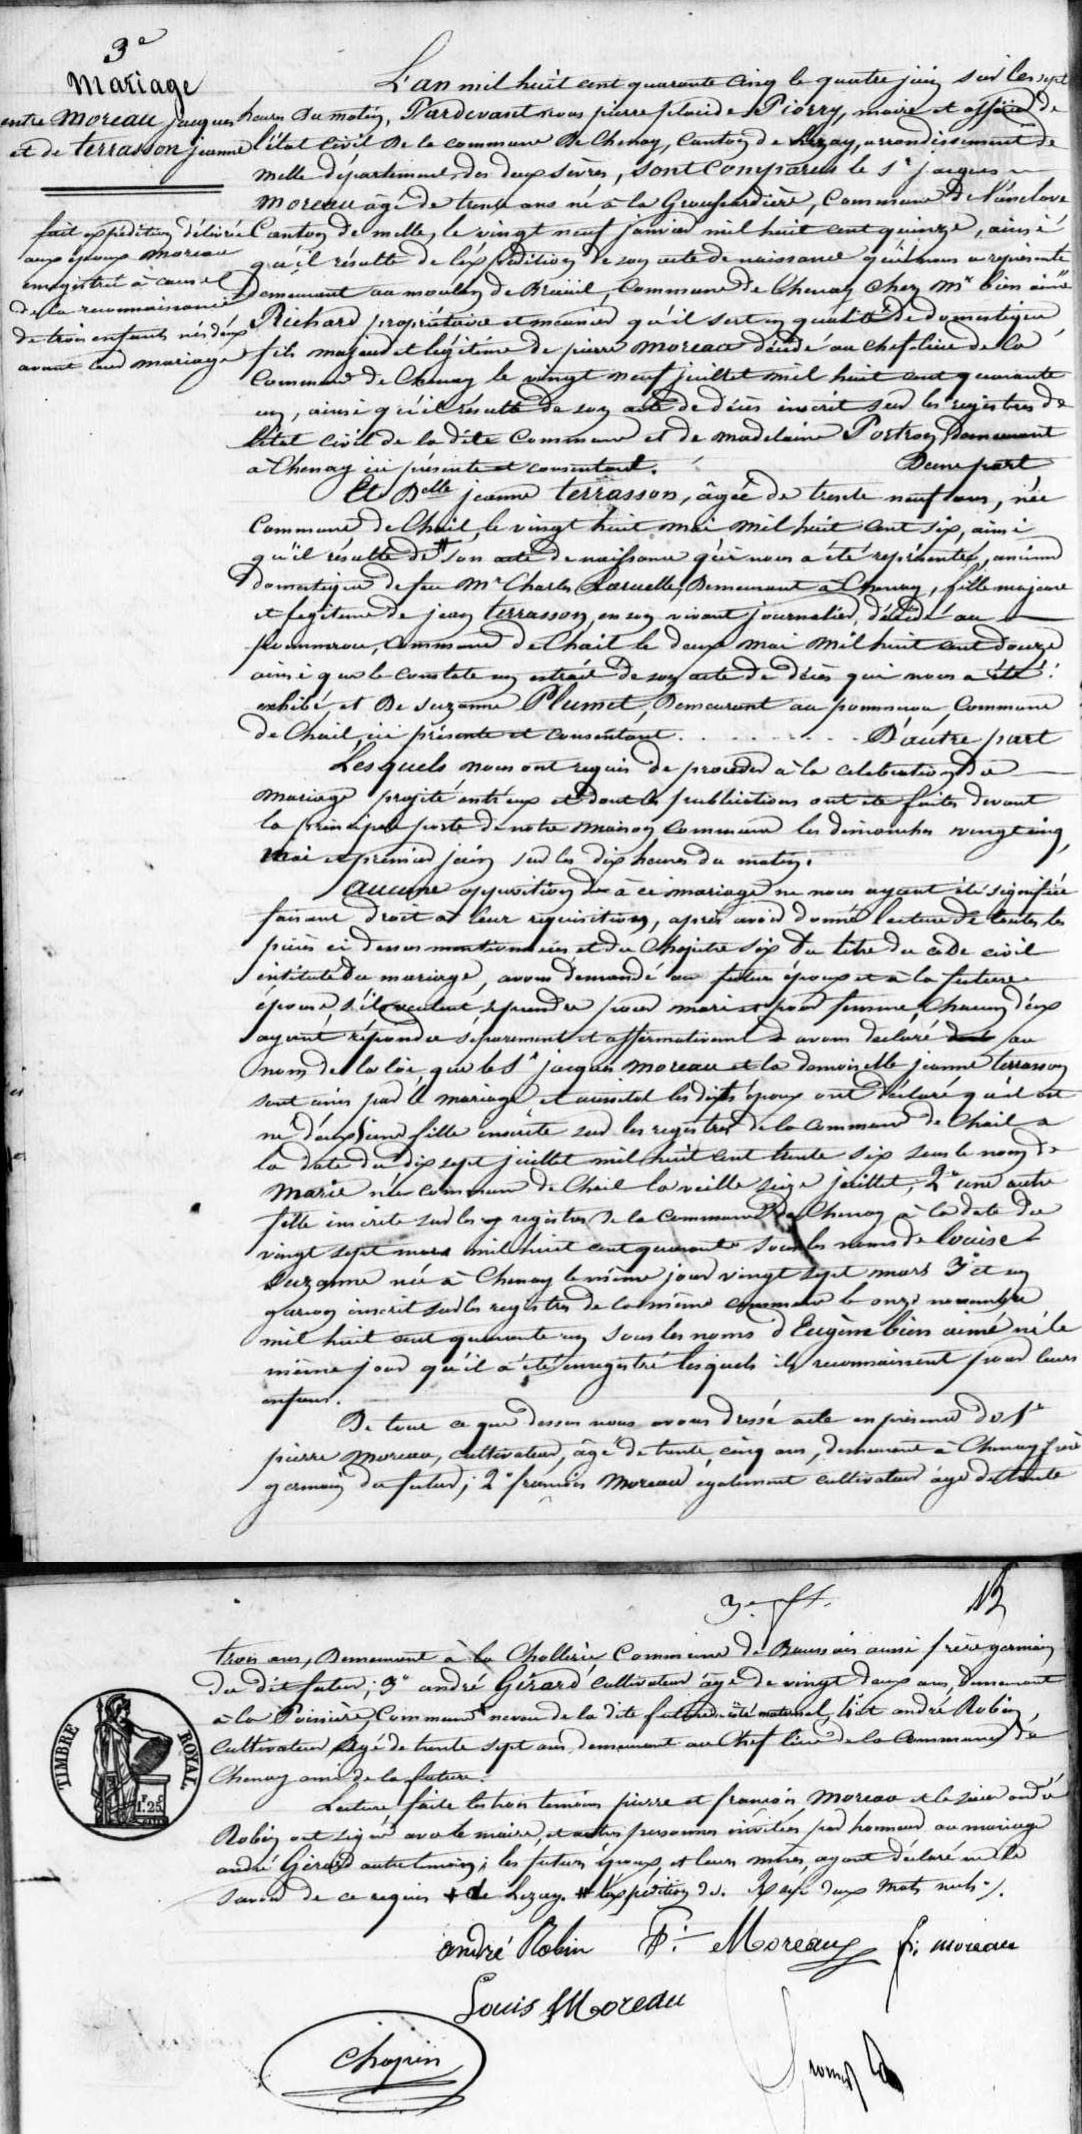 3e
Mariage
entre Moreau jacques
et de terrasson jeanne
fait expédition délivrée
aux époux Moreau
enregistré à cause
de la reconnaissance
de trois enfants nés d'eux
avant leur mariage
L'an mil huit cent quarante cinq le quatre juin sur les sept
heures du matin, Pardevant nous pierre placide Piorry, maire et officier de
l'état Civil de la commune de Chenay, Canton de Lezay, arrondissement de
Melle département des deux sèvres, sont Comparus le Sr jacques
Moreau âgé de trente ans né à la Groussardière, Commune de Vanclave,
Canton de melle, le vingt neuf janvier mil huit cent quinze, ainsi
qu'il résulte de l'éxpédition de son acte de naissance qui nous a représenté
Demeurant au moulin de Breuil, Commune de Chenay chez Mr bien aimé
Richard propriétaire et meunier qu'il sert en qualité de domestique
fils majeur et légitime de pierre Moreau décédé au chef-lieu de la
Commune de Chenay le vingt neuf juillet mil huit cent quarante
un, ainsi qu'il résulte de son acte de décès inscrit sur les registres de
l'état civil de la dite Commune et de Madelaine Portron Demeurant
à Chenay ici présente et consentant. D'une part
Et Delle jeanne terrasson, âgée de trente neuf ans, née
Commune de Chail, le vingt huit mai mil huit cent six, ainsi
qu'il résulte de # son acte de naissance qui nous a été représenté,
domestique de feu Mr Charles Demeurant à Chenay, fille majeure
et légitime de jean terrasson, en son vivant journalier, décédé au
pommerou, Commune de Chail le deux mai mil huit cent douze
ainsi que le constate un extrait de son acte de décès qui nous a été
exhibé, et De Suzanne Plumet, Demeurant au pommerou, Commune
de Chail, ici présente et consentant . . . . . . . . D'autre part
Lesquels nous ont requis de procéder à la celebration du
mariage projité entr'eux et dont les publications ont été faites devant
la principale porte de notre maison commune les dimanches vingt cinq
Mai et premier juin sur les dix heures du matin.
Aucune opposition à ce mariage ne nous ayant été signifiée
faisant droit à leur requisition, après avoir donné lecture de toutes les
pièces ci dessus mentionnées et du Chapitre six du titre du code civil
intitulé du mariage, avons demandé au futur époux et à la future
épouse s'ils veulent se prendre pour mari et pour femme, Chacun d'eux
ayant répondu séparement et affirmativement avons declaré au
nom de la loi que le Sr jacques Moreau et la demoiselle jeanne terrasson
sont unis par le mariage et aussitot les dits époux ont déclaré qu'il est
né d'eux une fille inscrite sur les registres de la commune de Chail à
la date du dix sept juillet mil huit cent trente six sous le nom de
Marie née commune de Chail la veille seize juillet, 2° une autre
fille inscrite sur les registres de la Commune de Chenay à la date du
vingt sept mars mil huit cent quarante sous les noms de Louise
Suzanne née à Chenay le même jour vingt sept mars 3° et un
garçon inscrit sur les registres de la même commune le onze novembre
mil huit cent quarante un sous les noms d'Eugène bien aimé né le
même jour qu'il a été enregistré lesquels ils reconnaissent pour leurs
enfans.
De tout ce que dessus nous avons dressé acte en présence de 1°
pierre Moreau, cultivateur, âgé de trente cinq ans, demeurant à Chenay frère
germain du futur; 2° françois Moreau egalement cultivateur âgé de trente
3e
trois ans, Demeurant à la Chollerie Commune de Baussais aussi frère germain
du dit futur; 3° andré Gérard cultivateur âgé de vingt deux ans, Demeurant
à la Poinière, Commune neveu de la dite future du côté maternel, 4° et andré Robin,
Cultivateur âgé de trente sept ans, demeurant au Chef lieu de la Commune de
Chenay ami de la future.
Lecture faite les trois temoins pierre et françois Moreau et le sieur andré
Robin ont signé avec le maire, et autres personnes invitées par honneur au mariage
andré Gérard autre temoin, les futurs époux, et leurs mères, ayant déclaré ne le
savoir de ce requis + de Lezay. # l'expédition de. Rayé deux mots nuls.
TIMBRE ROYAL
1F.25
andré Robin P: Moreau f: moreau
Louis Moreau
Chopin